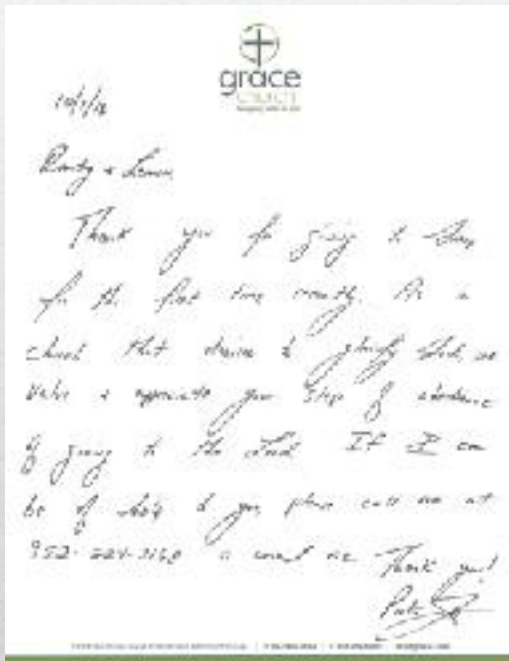 grace
church
10/1/18
Randy &
Thank you for giving to Grace
for the first time recently. As a
church that desires to glorify God, we
value & appreciate your step of obedience
of giving to the Lord. If I can
be of help to you please call me at
952-224-3160 or email me Thank you!